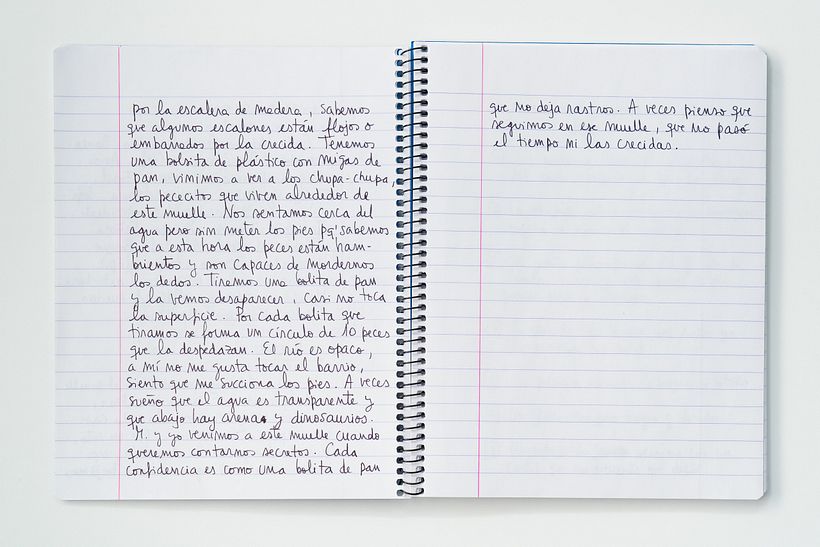 por la escalera de madera, sabemos
que algunos escalones están flojos o
embarrados por la crecida. Tenemos
una bolsita de plástico con migas de
pan, vinimos a ver a los chupa-chupa,
los pececitos que viven alrededor de
este muelle. Nos sentamos cerca del
agua pero sin meter los pies pq' sabemos
que a esta hora los peces están ham-
brientos y son capaces de mordernos
los dedos. Tiramos una bolita de pan
y la vemos desaparecer, casi no toca
la superficie. Por cada bolita que
tiramos se forma un círculo de 10 peces
que la despedazan. El río es opaco,
a mí no me gusta tocar el barrio,
siento que me succiona los pies. A veces
sueño que el agua es transparente y
que abajo hay arenas y dinosaurios.
M. y yo venimos a este muelle cuando
queremos contarnos secretos. Cada
confidencia es como una bolita de pan
que no deja rastros. A veces pienso que
seguimos en ese muelle, que no pasó
el tiempo ni las crecidas.